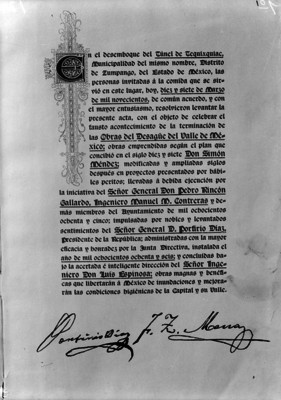 En el desemboque del Túnel de Tequixquiac,
Municipalidad del mismo nombre, Distrito
de Zumpango, del Estado de México, las
personas invitadas á la comida que se sir-
vió en este lugar, hoy, diez y siete de Marzo
de mil novecientos, de común acuerdo, y con
el mayor entusiasmo, resolvieron levantar la
presente acta, con el objeto de celebrar el
fausto acontecimiento de la terminación de
las Obras del Desagüe del Valle de Mé-
xico; obras emprendidas según el plan que
concibió en el siglo diez y siete Don Simón
Méndez; modificadas y ampliadas siglos
después en proyectos presentados por hábi-
les peritos; llevadas á debida ejecución por
la iniciativa del Señor General Don Pedro Rincón
Gallardo, Ingeniero Manuel M. Contreras y de-
más miembros del Ayuntamiento de mil ochocientos
ochenta y cinco; impulsadas por nobles y levantados
sentimientos del Señor General D. Porfirio Díaz,
Presidente de la República; administradas con la mayor
eficacia y honradez por la Junta Directiva, instalada el
año de mil ochocientos ochenta y seis; y concluídas ba-
jo la acertada é inteligente dirección del Señor Inge-
niero Don Luis Espinosa; obras magnas y benéfi-
cas que libertarán á México de inundaciones y mejora-
rán las condiciones higiénicas de la Capital y su Valle.
Porfirio Diaz J. Z. Mena